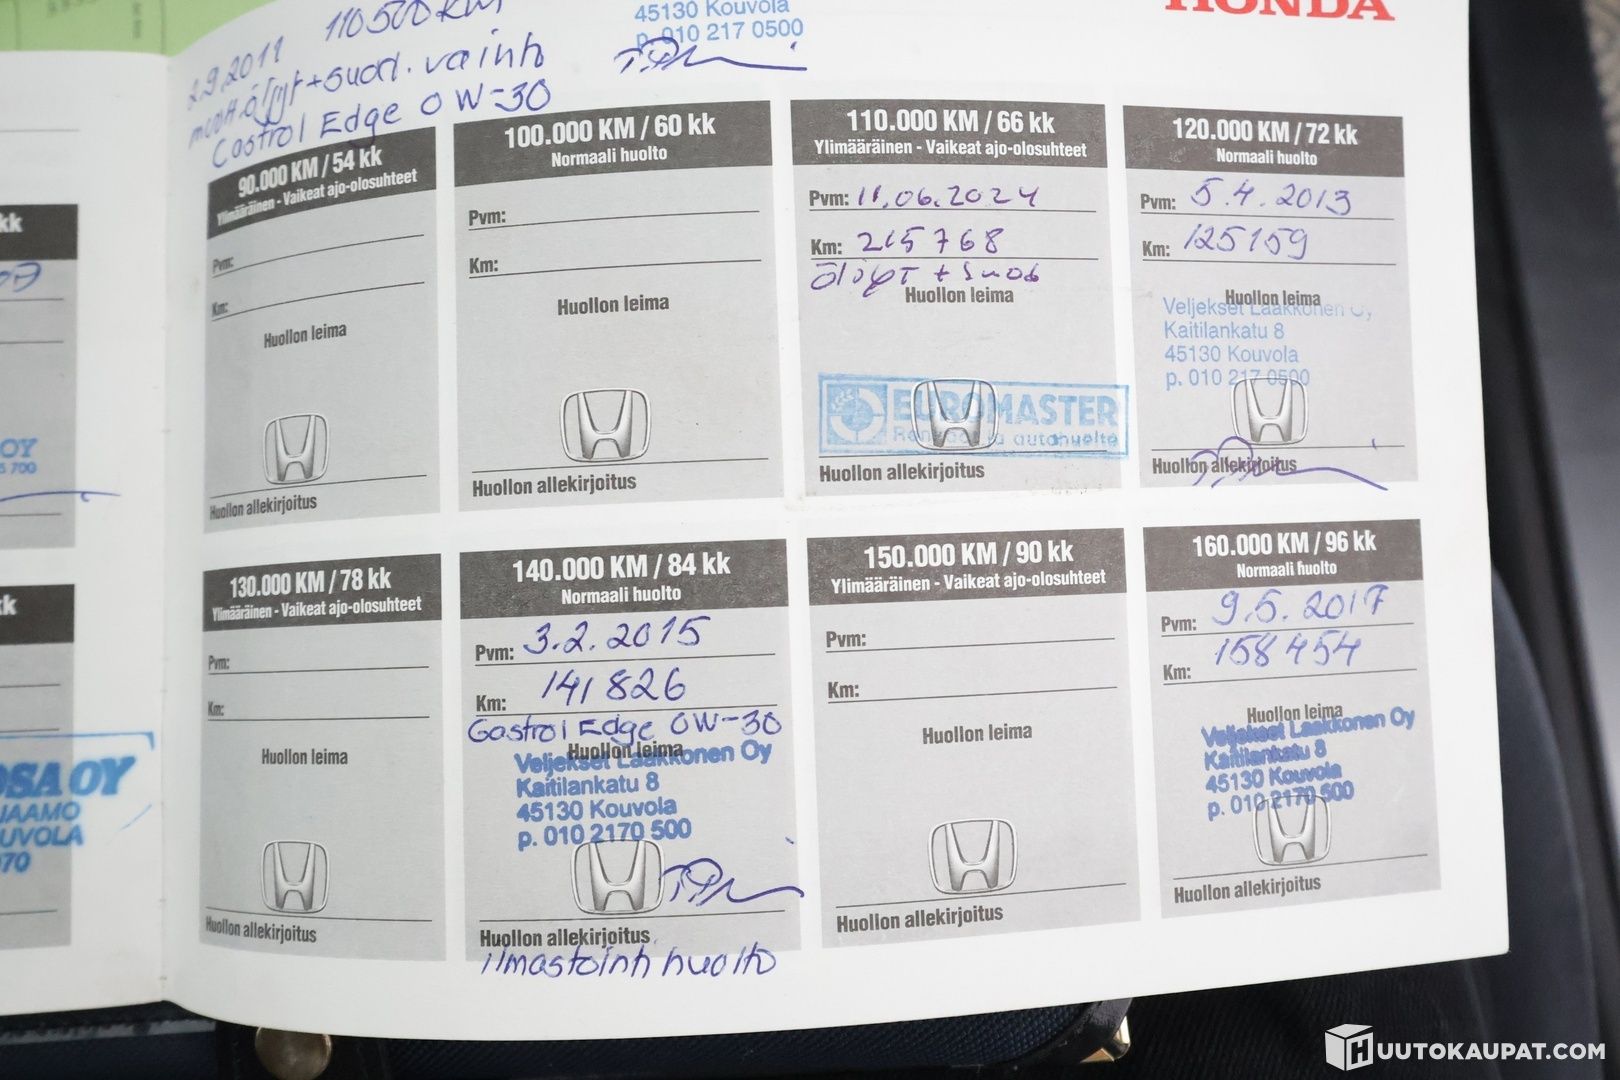 2.9.2011 110500 KM
moott.öljyt+suod. vaihto
Castrol Edge 0W-30
45130 Kouvola
p. 010 217 0500
HONDA
90.000 KM / 54 kk
Ylimääräinen - Vaikeat ajo-olosuhteet
Pvm:
Km:
Huollon leima
Huollon allekirjoitus
100.000 KM / 60 kk
Normaali huolto
Pvm:
Km:
Huollon leima
Huollon allekirjoitus
110.000 KM / 66 kk
Ylimääräinen - Vaikeat ajo-olosuhteet
Pvm: 11.06.2024
Km: 215768
Öljyt + Suod
Huollon leima
EUROMASTER
Renkaat ja autohuolto
Huollon allekirjoitus
120.000 KM / 72 kk
Normaali huolto
Pvm: 5.4.2013
Km: 125159
Huollon leima
Veljekset Laakkonen Oy
Kaitilankatu 8
45130 Kouvola
p. 010 217 0500
Huollon allekirjoitus
130.000 KM / 78 kk
Ylimääräinen - Vaikeat ajo-olosuhteet
Pvm:
Km:
Huollon leima
Huollon allekirjoitus
140.000 KM / 84 kk
Normaali huolto
Pvm: 3.2.2015
Km: 141826
Castrol Edge 0W-30
Huollon leima
Veljekset Laakkonen Oy
Kaitilankatu 8
45130 Kouvola
p. 010 2170 500
Huollon allekirjoitus
ilmastoinh huolto
150.000 KM / 90 kk
Ylimääräinen - Vaikeat ajo-olosuhteet
Pvm:
Km:
Huollon leima
Huollon allekirjoitus
160.000 KM / 96 kk
Normaali huolto
Pvm: 9.5.2017
Km: 158454
Huollon leima
Veljekset Laakkonen Oy
Kaitilankatu 8
45130 Kouvola
p. 010 2170 500
Huollon allekirjoitus
kk
OY
5 700
kk
OSA OY
JAAMO
UVOLA
070
HUUTOKAUPAT.COM